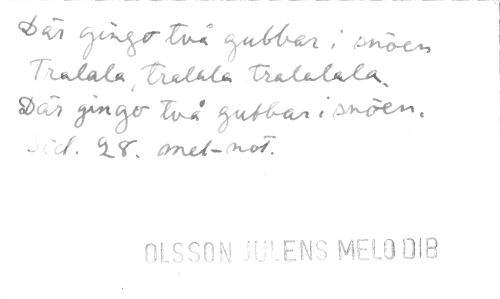 Där gingo två gubbar i snöen
Tralala, tralala tralalala.
Där gingo två gubbar i snöen.
Sid. 28. mel-not.
OLSSON JULENS MELODIB